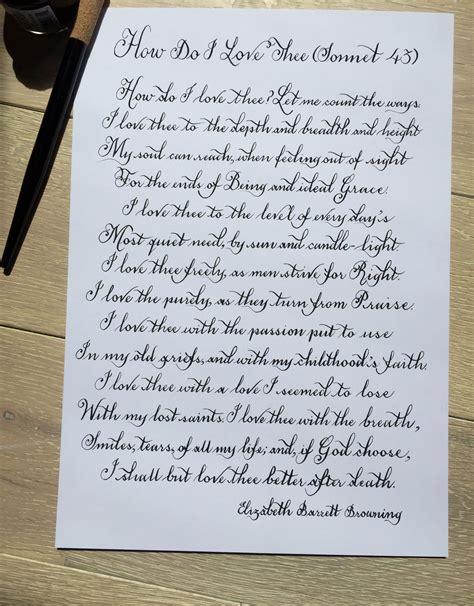 How Do I Love Thee (Sonnet 43)
How do I love thee? Let me count the ways.
I love thee to the depth and breadth and height
My soul can reach, when feeling out of sight
For the ends of Being and ideal Grace.
I love thee to the level of every day's
Most quiet need, by sun and candle-light.
I love thee freely, as men strive for Right.
I love the purely, as they turn from Praise.
I love thee with the passion put to use
In my old griefs, and with my childhood's faith.
I love thee with a love I seemed to lose
With my lost saints. I love thee with the breath,
Smiles, tears, of all my life; and, if God choose,
I shall but love thee better after death.
Elizabeth Barrett Browning